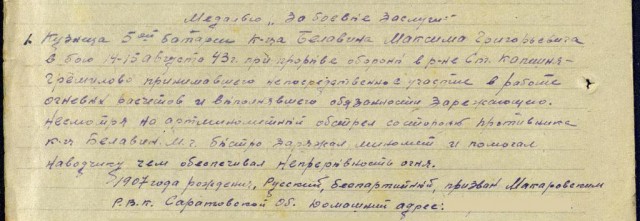 Медалью „За боевые заслуги"
1. Кузнеца 5ой батареи к-ца Белавина Максима Григорьевича
в бою 14-15 августа 43 г. при прорыве обороны в р-не Ст. Капшня-
Гремилово принимавшего непосредственное участие в работе
огневых расчетов и выполнявшего обязанности заряжающего.
Несмотря на артминометный обстрел со стороны противника
к-ц Белавин М.Г. быстро заряжал миномет и помогал
наводчику чем обеспечивал непрерывность огня.
1907 года рождения, Русский, беспартийный, призван Макаровским
Р.В.К. Саратовской об. Домашний адрес: